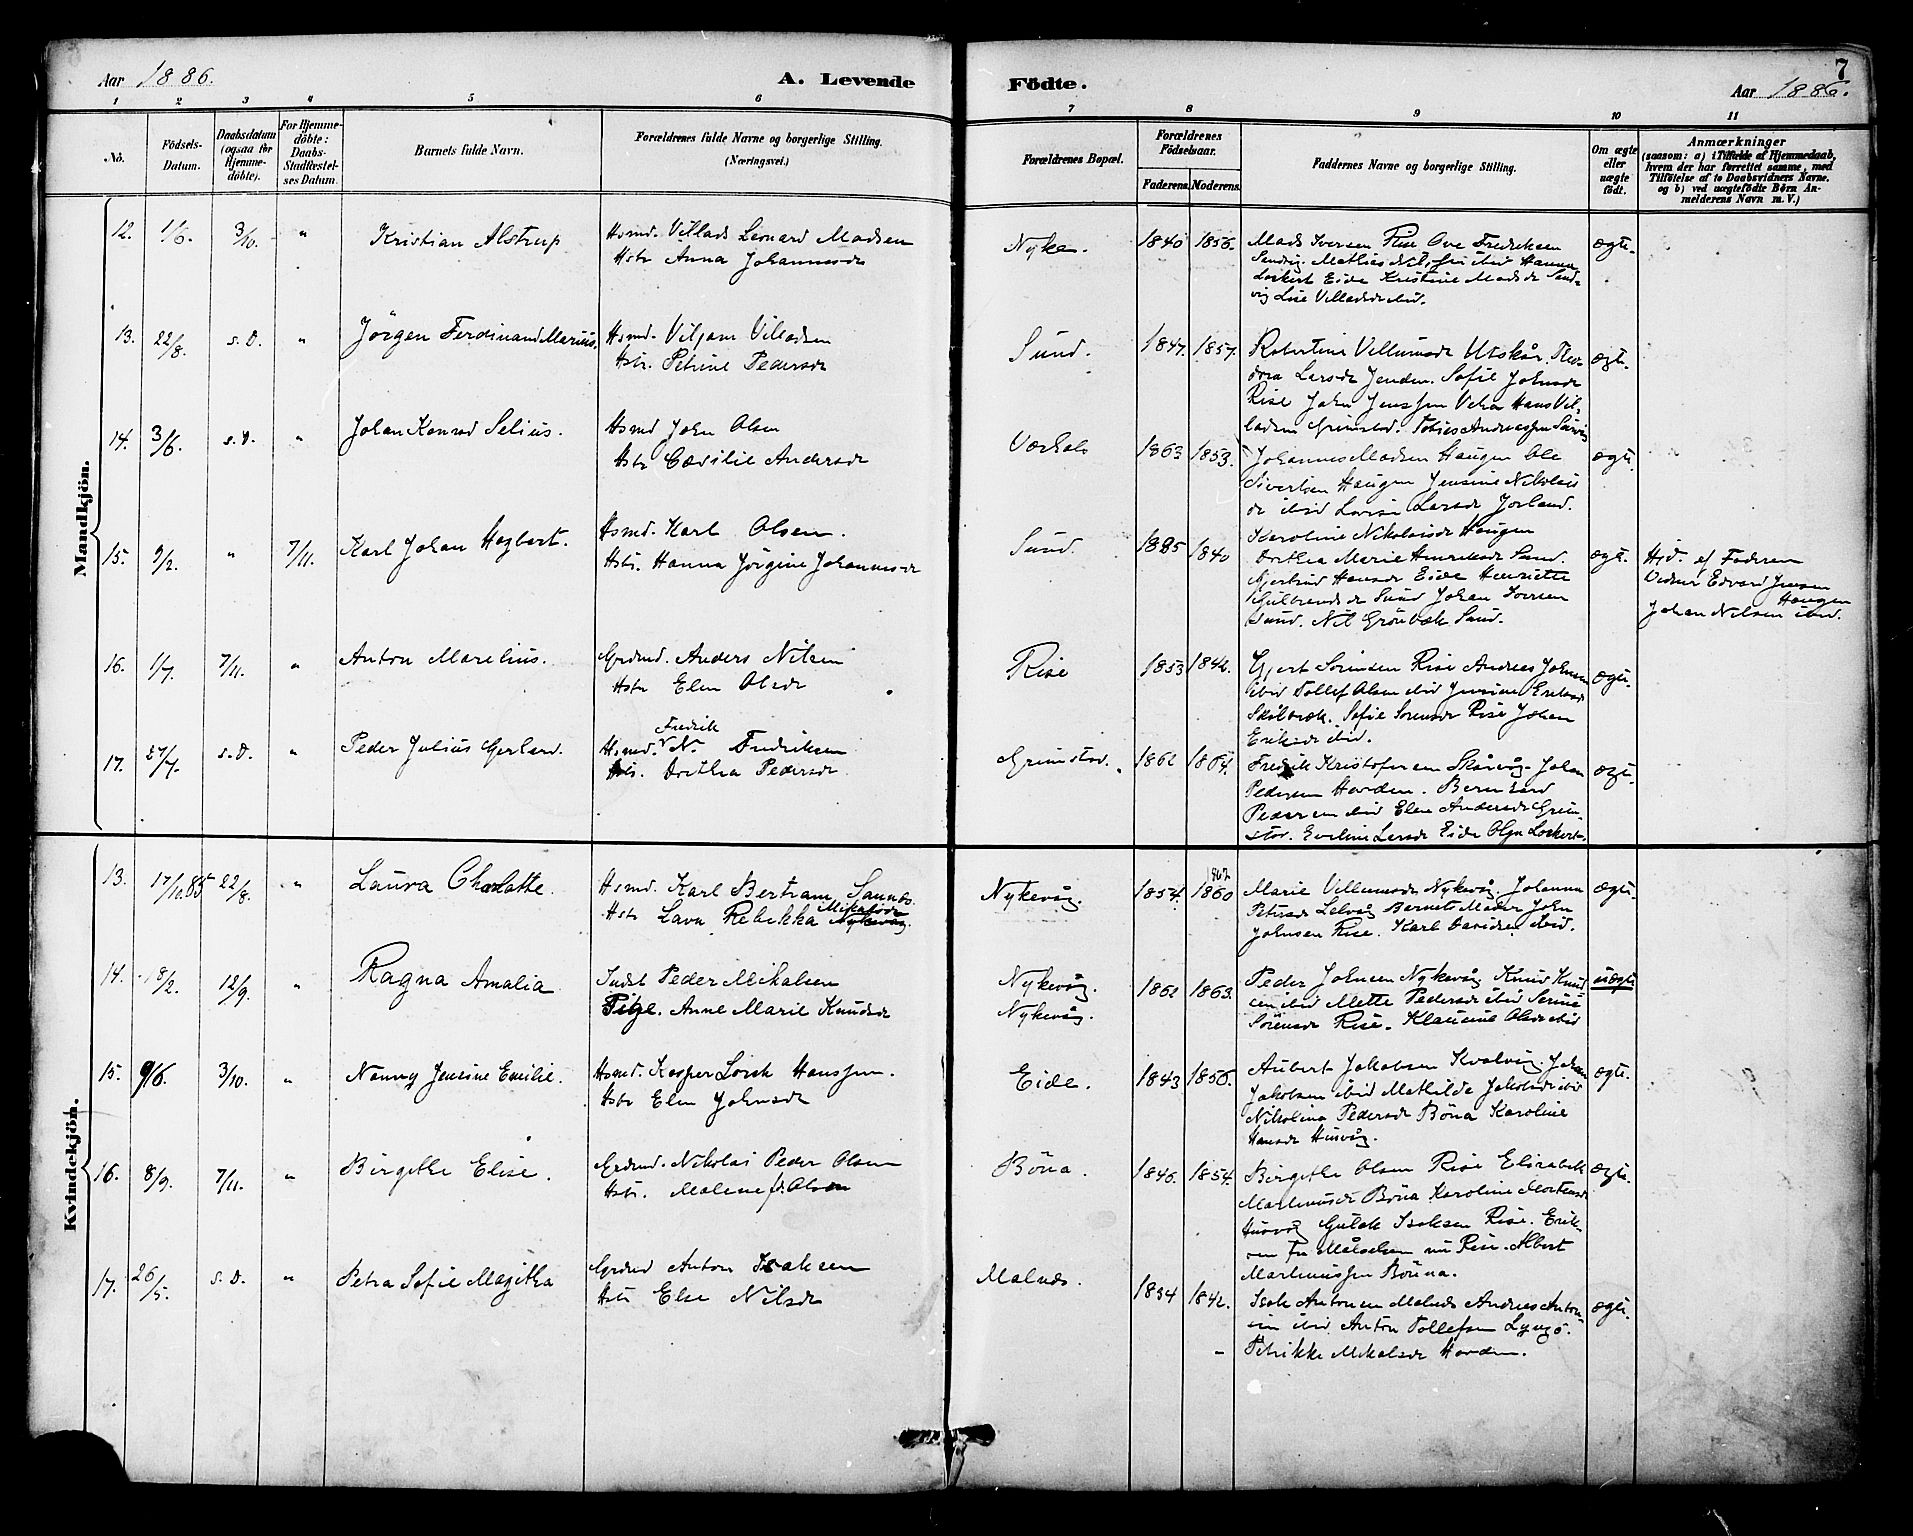 7
Aar 1886.
A. Levende
Födte.
Aar 1886.
1 2 3 4 5 6 7 8 9 10 11
No.
Födsels-
Datum.
Daabsdatum
(ogsaa for
Hjemme-
döbte).
For Hjemme-
döbte:
Daabs-
Stadfæstel-
ses Datum.
Barnets fulde Navn.
Forældrenes fulde Navne og borgerlige Stilling.
(Næringsvei.)
Forældrenes Bopæl.
Forældrenes
Födselsaar.
Faderens. Moderens.
Faddernes Navne og borgerlige Stilling.
Om ægte
eller
uægte
födt.
Anmærkninger
(saasom: a) i Tilfælde af Hjemmedaab,
hvem der har forrettet samme, med
Tilföielse af to Daabsvidners Navne.
og b) ved uægtefödte Börn An-
melderens Navn m.V.)
Mandkjön.
12. 1/6. 3/10. " Kristian Alstrup
Hsmd. Villads Leonard Madsen
Hstr Anna Johannesdr
Nyke. 1840 1856.
Mads Iversen Rise Ove Fredriksen
Sandvig. Mathias ibid Hanna
Lockert Eide Kristine Madsdr Sand-
vig Lise Villadsdr ibid.
ægte.
13. 22/8. s.D. " Jörgen Ferdinand Marius.
Hsmd. Viljam Villadsen
Hstr. Petrine Pedersdr
Sund. 1847. 1857.
Robertine Villumsdr Utskår. Theo-
dora Larsdr Jenden. Sofie Johnsdr
Rise John Jenssen Hans Vil-
ladsen Grimstad. Tobias Andreassen
ægte.
14. 3/6. s.D. " Johan Konrad Selius.
Hsmd John Olsen
Hstr Cæcilie Andersdr
1863 1853.
Johannes Madsen Haugen Ole
Sivertsen Haugen Jensine Nikolai
dr ibid Lovise Larsdr Jorland.
Karoline Nikolaisdr Haugen
ægte
15. 9/2. " 7/11. Karl Johan Hagbart.
Hsmd. Karl Olsen.
Hstr. Hanna Jörgine Johannesdr
Sund. 1885 1840
Dorthea Marie Henriksdr Sund.
Gjertrud Hansdr Eide Henriette
Gulbrandsdr Sund Johan Iversen
Sund. Nil Grönbæk Sund.
ægte.
Hjd. af Faderen
Vidner Edvard Jensen
Haugen
Johan Nilsen ibid.
16. 1/7. 7/11. " Anton Marelius.
Grdmd. Anders Nilsen
Hstr Elen Olsdr
Rise 1853 1842.
Gjert Sörensen Rise Andreas Johnsen
ibid Tollef Olsen ibid Jensine Eriksdr
Skölbræk. Sofie Sorensdr Rise Johan
Eriksdr ibid.
ægte.
17. 27/7. s.D. " Peder Julius Gerhard.
Fredrik
Hsmd. N. Fredriksen
Hstr. Dorthea Pedersdr.
Grimstad. 1862 1864.
Fredrik Kristofersen Skårvåg. Johan
Pedersen Hovden. Bernhard
Pedersen ibid Elen Andersdr Grim-
stad. Eveline Larsdr Eide Olga Lockert.
ægte.
Kvindekjön.
13. 17/10.85 22/8. " Laura Charlotte.
Hsmd. Karl Bertram Sannes.
Hstr Lava Rebekka Nykevåg.
Mikalsdr
Nykevåg. 1854. 1860
1862
Marie Villumsdr Nykevåg. Johanna
Petersdr Lelvåg Barnets Moder John
Johnsen Rise. Karl Davidsen ibid.
ægte.
14. 18/2. 12/9. " Ragna Amalia
Indst Peder Mikalsen
Pige. Anne Marie Knudsdr
Nykevåg.
Nykevåg.
1862 1863.
Peder Johnsen Nykevåg Knud Knud-
sen ibid Mette Pedersdr ibid Serine
Sörensdr Rise. Klausine Olsdr ibid
uægte
15. 9/6. 3/10. " Nanny Jensine Emilie.
Hsmd. Kasper Lorck Hanssen.
Hstr Elen Johnsdr
Eide. 1843 1856.
Aubert Jakobsen Kvalvåg. Johan
Jakobsen ibid Mathilde Jakobsdr ibid
Nikolina Pedersdr Böna Karoline
Hansdr Husvåg.
ægte.
16. 8/9. 7/11. " Birgethe Elise.
Grdmd. Nikolai Peder Olsen
Hstr. Malene f. Olsen
Böna. 1846. 1854.
Birgethe Olsen Rise Elisabeth
Martinusdr Böna Karoline Mortensdr
Husvåg Gulak Isaksen Rise. Erik-
sen fra Målselven nu Rise. Albert
Martinussen Böna.
ægte.
17. 26/5. s.D. " Petra Sofie Magitha
Grdmd Anton Isaksen
Hstr Else Nilsdr
Malnes. 1834 1842.
Isak Antonsen Malnes Andreas Anton-
sen ibid Anton Tollefsen Lyngö.
Petrikke Mikalsdr Hovden.
ægte.